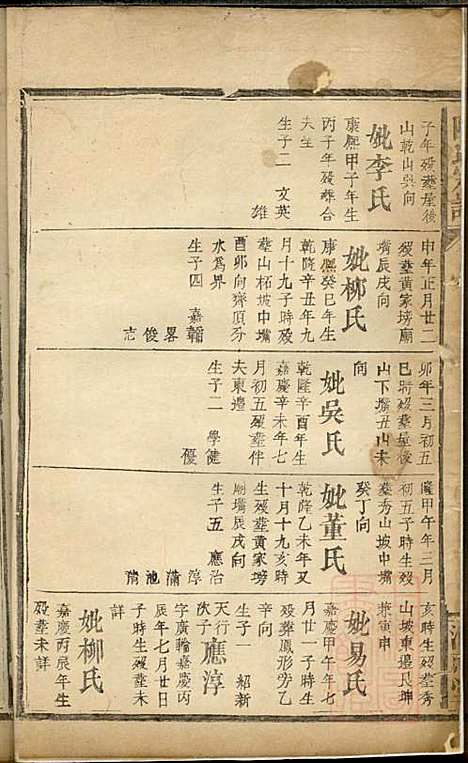 子年歿葬屋後
山乾山巽向
妣李氏
康熙甲子年生
丙子年歿葬合
夫生
生子二 文英
雄
申年正月廿二
歿葬黃家塝廟
嘴辰戌向
妣柳氏
康熙癸巳年生
乾隆辛丑年九
月十九子時歿
葬山柘坡中嘴
酉卯向齊頂分
水為界
生子四 嘉
畧
俊
志
卯年三月初五
巳時歿葬屋後
山下嘴丑山未
向
妣吳氏
乾隆辛酉年生
嘉慶辛未年七
月初五歿葬伴
夫東邊
生子二 學健
優
隆甲午年三月
初五子時生歿
葬秀山坡中墩
癸丁向
妣董氏
乾隆乙未年又
十月十九亥時
生歿葬黃家塝
廟嘴辰戌向
生子五 應治
淳
潚
池
亥時生歿葬秀
山坡東邊艮坤
兼寅申
妣易氏
嘉慶甲午年七
月廿一子時生
歿葬鳳形旁乙
辛向
生子一 紹新
天行
次子 應淳
字廣輪嘉慶丙
辰年七月廿日
子時生歿葬未
詳
妣柳氏
嘉慶丙辰年生
歿葬未詳